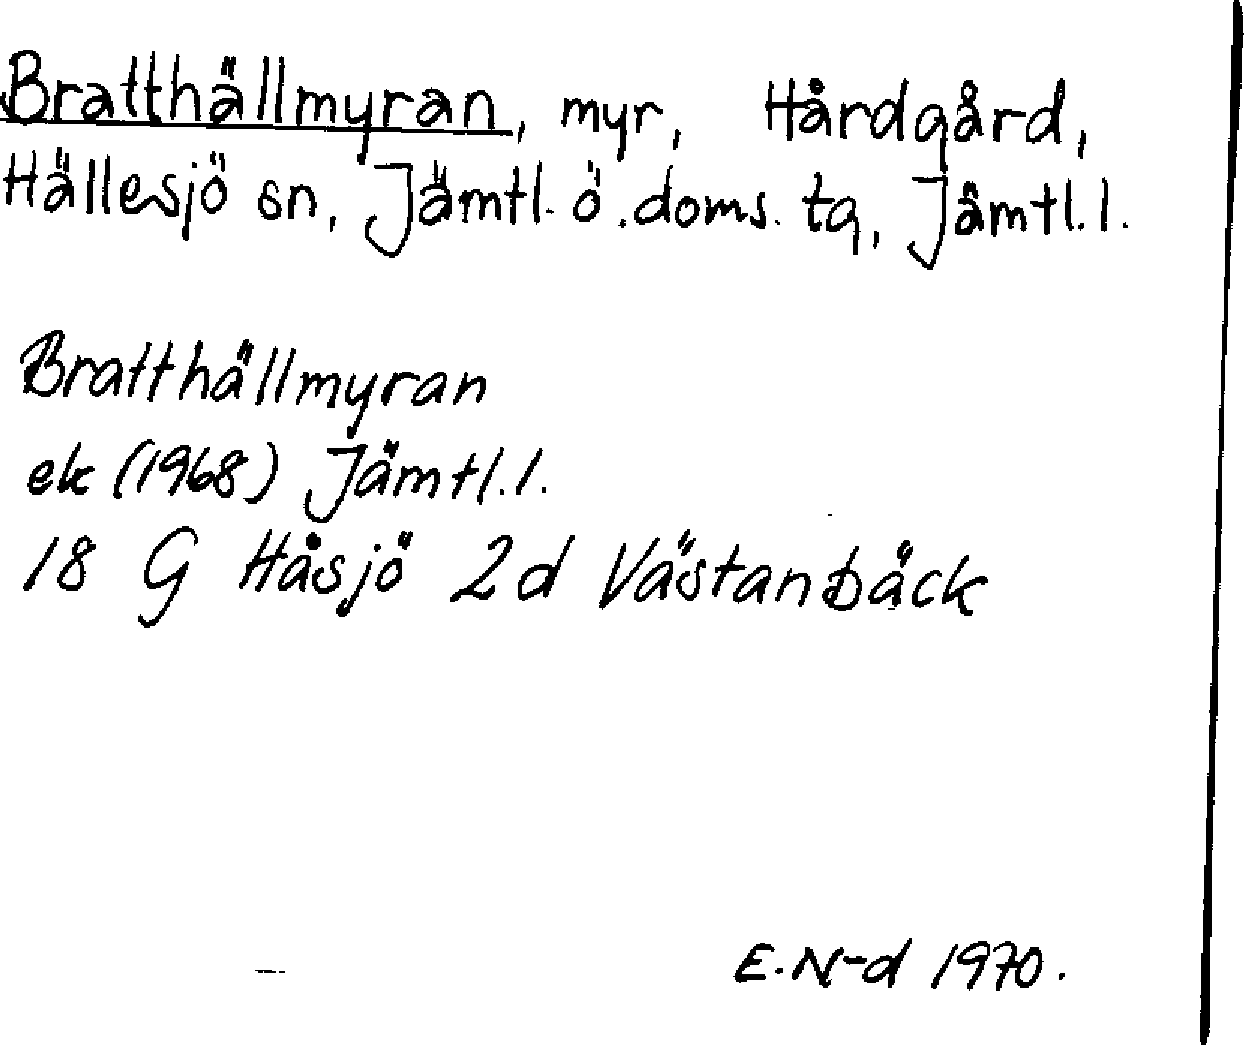 Bratthällmyran, myr, Hårdgård,
Hällesjö sn, Jämtl. ö. doms. tg, Jämtl. l.
Bratthällmyran
ek (1968) Jämtl. l.
18 G Håsjö 2d Västanbäck
E. N-d 1970.